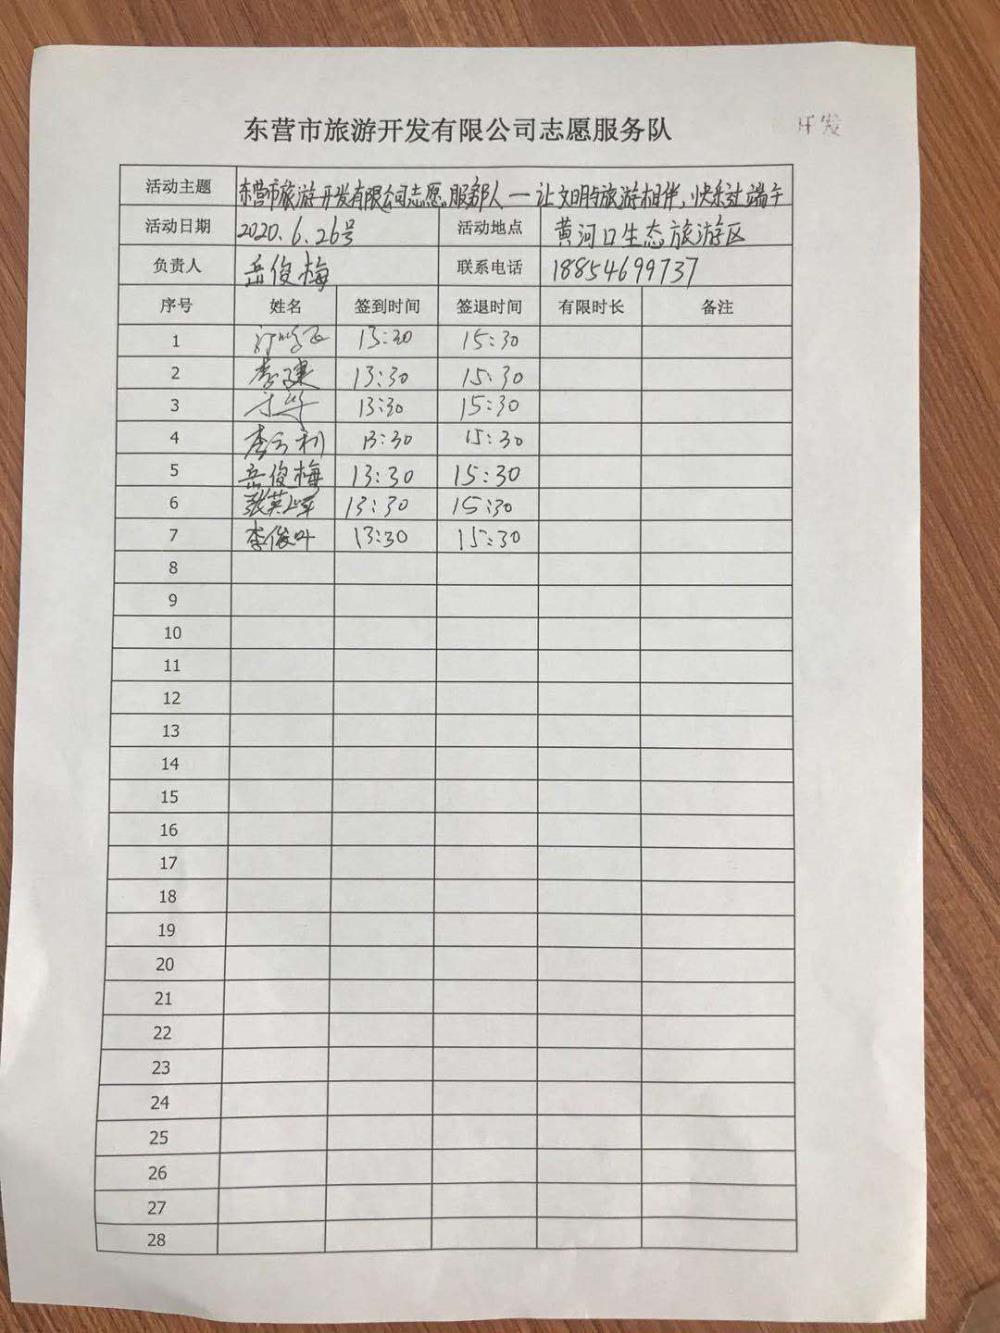 东营市旅游开发有限公司志愿服务队
开发
活动主题 东营市旅游开发有限公司志愿服务队—让文明与旅游相伴,快乐过端午
活动日期 2020.6.26号 活动地点 黄河口生态旅游区
负责人 岳俊梅 联系电话 18854699737
序号 姓名 签到时间 签退时间 有限时长 备注
1 13:30 15:30
2 李建 13:30 15:30
3 13:30 15:30
4 13:30 15:30
5 岳俊梅 13:30 15:30
6 13:30 15:30
7 李俊叶 13:30 15:30
8
9
10
11
12
13
14
15
16
17
18
19
20
21
22
23
24
25
26
27
28